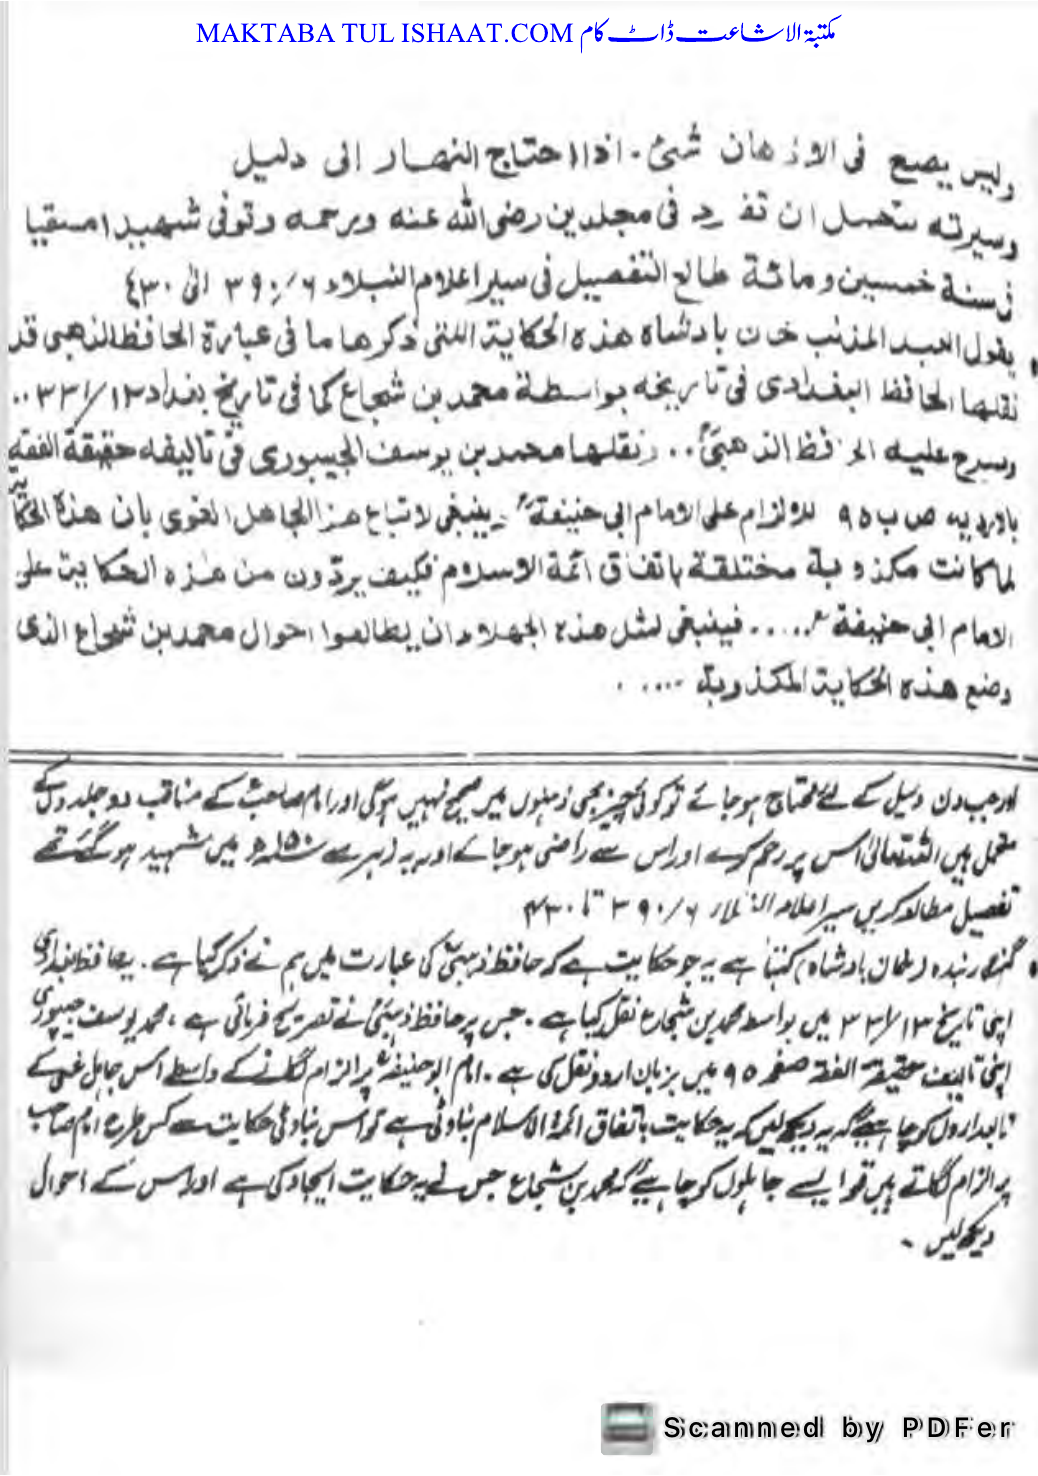 MAKTABA TUL ISHAAT.COM مکتبۃ الاشاعت ڈاٹ کام
وليس يصح فى الاذهان شئ . اذا احتاج النهار الى دليل
وسيرته تحتمل ان تفرد فى مجلدين رضى الله عنه ورحمه وتوفى شهيدا مسقيا
فى سنة خمسين ومائة طالع التفصيل فى سير اعلام النبلاء ۶ / ۳۹۰ الى ۴۳۰
يقول العبد المذنب خان بادشاه هذه الحكاية اللتى ذكرها ما فى عبارة الحافظ الذهبى قد
نقلها الحافظ البغدادى فى تاريخه بواسطة محمد بن شجاع كما فى تاريخ بغداد ۱۳ / ۳۳۱ ..
وصرح عليه الحافظ الذهبىؒ .. ونقلها محمد بن يوسف الجيبورى فى تاليفه حقيقة الفقه
بالاردیہ ص ۹۵ للالزام على الامام ابى حنيفةؒ ينبغى لاتباع هذا الجاهل الغوى بان هذه الحكاية
لما كانت مكذوبة مختلقة باتفاق ائمة الاسلام فكيف يردون من هذه الحكاية على
الامام ابى حنيفةؒ ..... فينبغى لمثل هذه الجهلاء ان يطالعوا احوال محمد بن شجاع الذى
وضع هذه الحكاية المكذوبة .....
اور جب دن دلیل کے لئے محتاج ہوجائے تو کوئی چیز بھی ذہنوں میں صحیح نہیں ہوگی اور امام صاحبؒ کے مناقب دو جلدوں کے
متحمل ہیں اللہ تعالیٰ اس پر رحم کرے اور اس سے راضی ہو جائے اور یہ زہر سے ۱۵۰ھ میں شہید ہوگئے تھے
تفصیل مطالعہ کریں سیر اعلام النبلاء ۶ / ۳۹۰ تا ۴۳۰
گنہگار بندہ (خان بادشاہ) کہتا ہے یہ جو حکایت ہے کہ حافظ ذہبیؒ کی عبارت میں ہم نے ذکر کیا ہے . یہ حافظ بغدادیؒ
اپنی تاریخ ۱۳ / ۳۳۱ میں بواسطہ محمد بن شجاع نقل کیا ہے . جس پر حافظ ذہبیؒ نے تصریح فرمائی ہے ، محمد یوسف جیپوری
اپنی تالیف حقیقۃ الفقہ صفحہ ۹۵ میں بزبان اردو نقل کی ہے . امام ابو حنیفہؒ پر الزام لگانے کے واسطے اس جاہل غبی کے
تابعداروں کو چاہیئے کہ یہ دیکھ لیں کہ یہ حکایت باتفاق ائمۃ الاسلام بناوٹی ہے تو اس بناوٹی حکایت سے کس طرح امام صاحب
پر الزام لگاتے ہیں تو ایسے جاہلوں کو چاہیئے کہ محمد بن شجاع جس نے یہ حکایت ایجاد کی ہے اور اس کے احوال
دیکھ لیں .
Scanned by PDFer